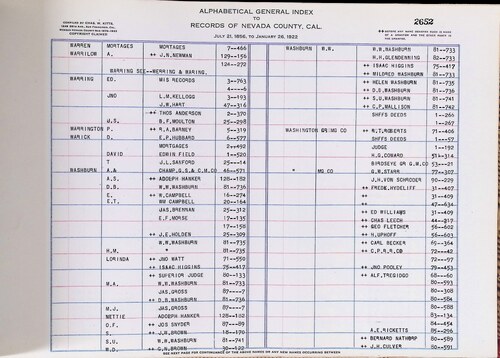 ALPHABETICAL GENERAL INDEX
TO
RECORDS OF NEVADA COUNTY, CAL.
JULY 21, 1856, TO JANUARY 26, 1922
COPYRIGHT CLAIMED
2652
WARREN MORTAGES MORTAGES 7--466
WARRILOW A. ++ J.N.NEWMAN 129--156
124--272
WARRING SEE--WERRING & WARING.
WARRING ED. MIS RECORDS 3--763
4----6
JNO L.M.KELLOGG 3--193
J.W.HART 47--316
++ THOS ANDERSON 2--370
W.S. B.F.MOULTON 25--298
WARRINGTON P. ++ R.A.BARNEY 5--319
WARICK D. E.P.HUBBARD 6--577
MORTAGES 2--492
DAVID EDWIN FIELD 1--520
T J.L.SANFORD 25--14
WASHBURN A.A. CHAMP.G.S.& C.M.CO 46--571
A.S. ++ ADOLPH HANKER 128--182
D.B. W.W.WASHBURN 81--736
E. ++ W.CAMPBELL 16--274
E.T. WM CAMPBELL 20--164
JAS.BRENNAN 25--312
E.F.MORSE 17--135
17--158
++ J.E.HOLDEN 25--309
W.W.WASHBURN 81--735
H.M. " 81--735
LORINDA ++ JNO WATT 71--550
++ ISAAC HIGGINS 75--417
++ SUPERIOR JUDGE 80--133
M.A. W.W.WASHBURN 81--733
JAS.GROSS 87----7
++ D.B.WASHBURN 81--736
M.J. JAS.GROSS 87----7
NETTIE ADOLPH HANKER 128--182
O.F. ++ JOS SNYDER 87--89
S. ++ J.H.BROWN 18--170
S.U. W.W.WASHBURN 81--741
W.D. ++ G.N.BROWN 30--122
WASHBURN W.W. W.W.WASHBURN 81--733
H.H.GLENDENNING 82--733
++ ISAAC HIGGINS 75--417
++ MILDRED WASHBURN 81--733
++ HELEN WASHBURN 81--735
++ D.B.WASHBURN 81--736
++ S.U.WASHBURN 81--741
++ C.P.MALLISON 81--742
SHFFS DEEDS 1--266
1--267
WASHINGTON GR:MG CO ++ W.T.ROBERTS 71--406
SHFFS DEEDS 1--57
JUDGE 1--192
H.G.COWARD 51--314
BIRDSEYE GR G.M.CO 53--21
" MG CO G.W.STARR 77--307
J.H.VON SCHRODER 90--229
++ FREDK.HYDELIFF 31--407
++ 31--409
++ 47--634
++ ED WILLIAMS 31--409
++ CHAS LEECH 44--217
++ GEO FLETCHER 56--602
++ H.UPHOFF 56--603
++ CARL BECKER 65--364
++ C.P.R.R.CO 72--42
72--97
++ JNO POOLEY 72--453
++ ALF.TREGIDGO 68--60
80--593
80--308
80--584
80--588
83--134
84--454
A.E.RICKETTS 81--298
++ BERNARD NATHORP 80--589
++ J.H.CULVER 80--591
SEE NEXT PAGE FOR CONTINUANCE OF THE ABOVE NAMES OR ANY NEW NAMES OCCURRING BETWEEN